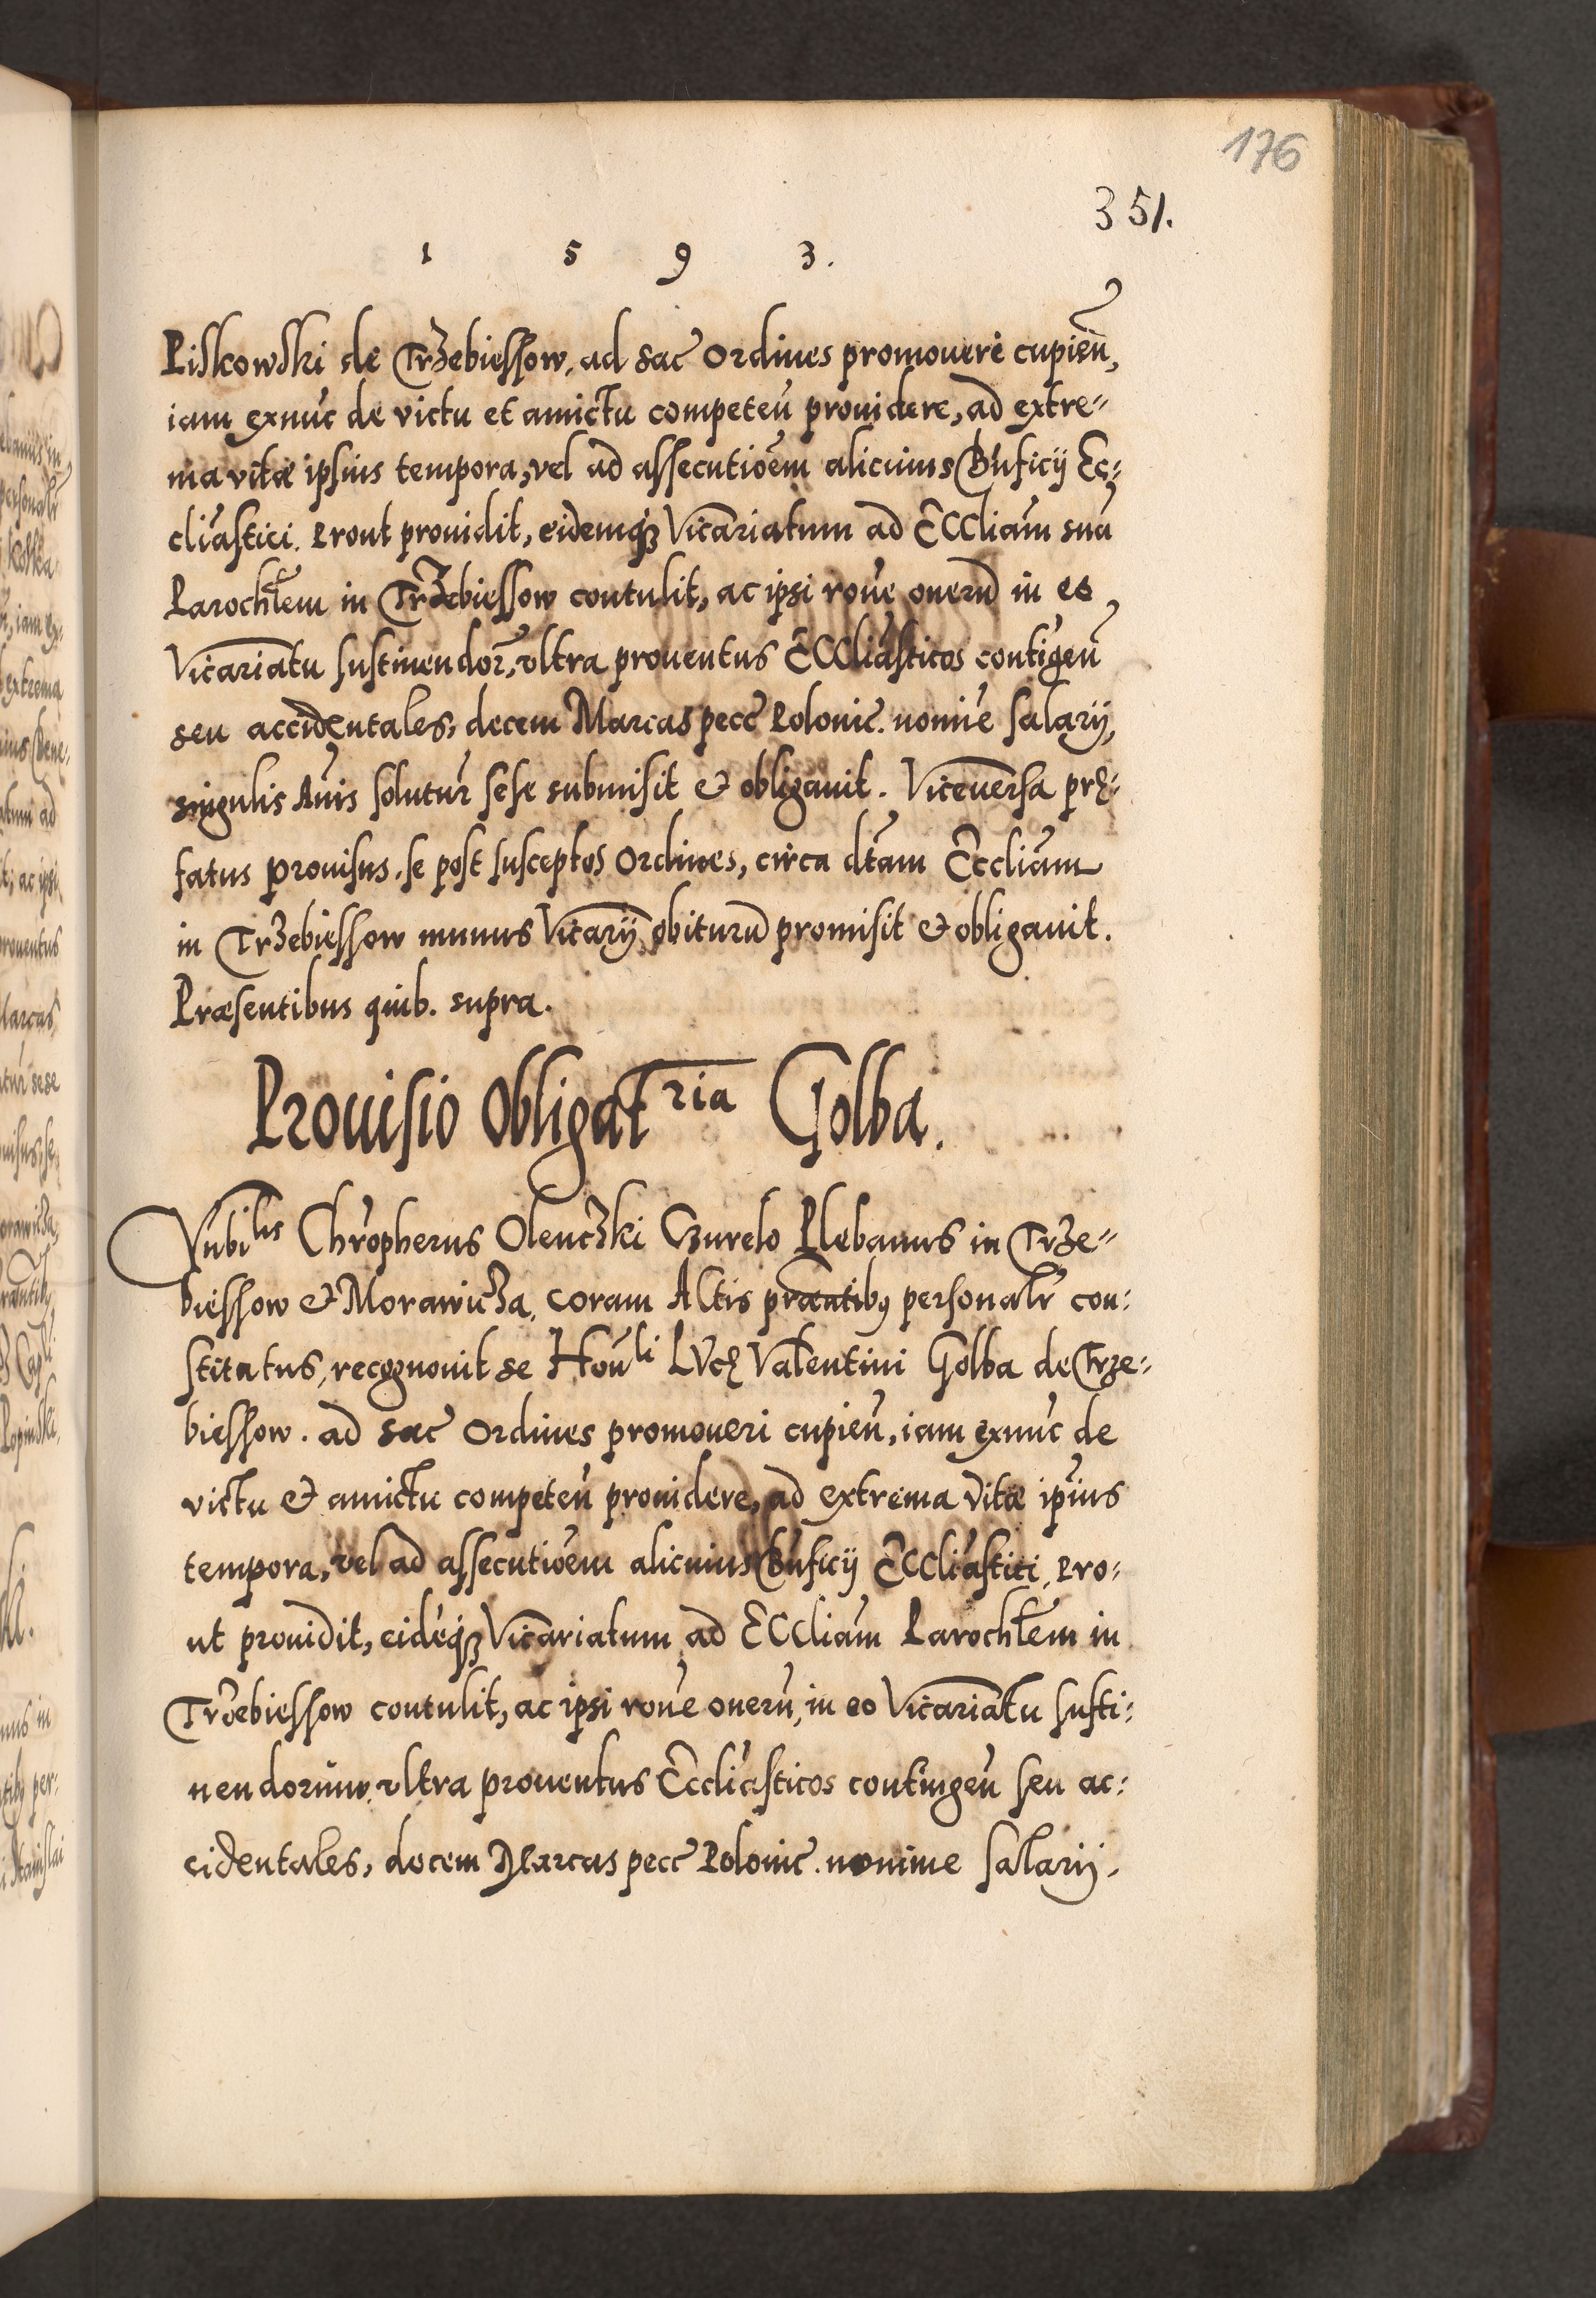 176
351.
1 5 9 3.
Piskowski de Trzebiessow, ad sac̄ Ordines promoueri cupien̄,
iam exnuc̄ de victu et amictu competen̄ prouidere, ad extre=
ma vitæ ipsius tempora, vel ad assecutiōem alicuius Bn̄ficij Ec=
cliāstici. Prout prouidit, eidemqꝫ Vicariatum ad Ecclīam suā
Parochlēm in Trzebiessow contulit, ac ipsi rōne onerū in eo
Vicariatu sustinendor̄, vltra prouentus Ecclīasticos contigen̄
seu accidentales, decem Marcas pecc̄ Polonic̄. nomīe salarij,
singulis Annis solutur̄ sese submisit & obligauit. Viceuersa prę=
fatus Prouisus. se post susceptos Ordines, circa dctam Ecclīam
in Trzebiessow munus Vicarij obiturū promisit & obligauit.
Præsentibus quib. supra.
Prouisio Obligat͞ria Golba.
Nobilis Chrōpherus Olenczki Czurelo Plebanus in Trze=
biessow & Morawicza, coram Actis præntibꝰ personalr̄ con=
stitutus, recognouit se Honli Valentini Golba de Trze=
biessow. ad sac̄ Ordines promoueri cupien̄, iam exnuc̄ de
victu & amictu competen̄ prouidere, ad extrema vitæ ipīus
tempora, vel ad assecutiōem alicuius Bn̄ficij Ecclīastici, Pro=
ut prouidit, eidēqꝫ Vicariatum ad Ecclīam Parochlēm in
Trzebiessow contulit, ac ipsi rōne onerū, in eo Vicariatu susti=
nendorum, vltra prouentus Ecclīasticos contingen̄ seu ac=
cidentales, decem Marcas pecc̄ Polonic̄. nomine Salarij.